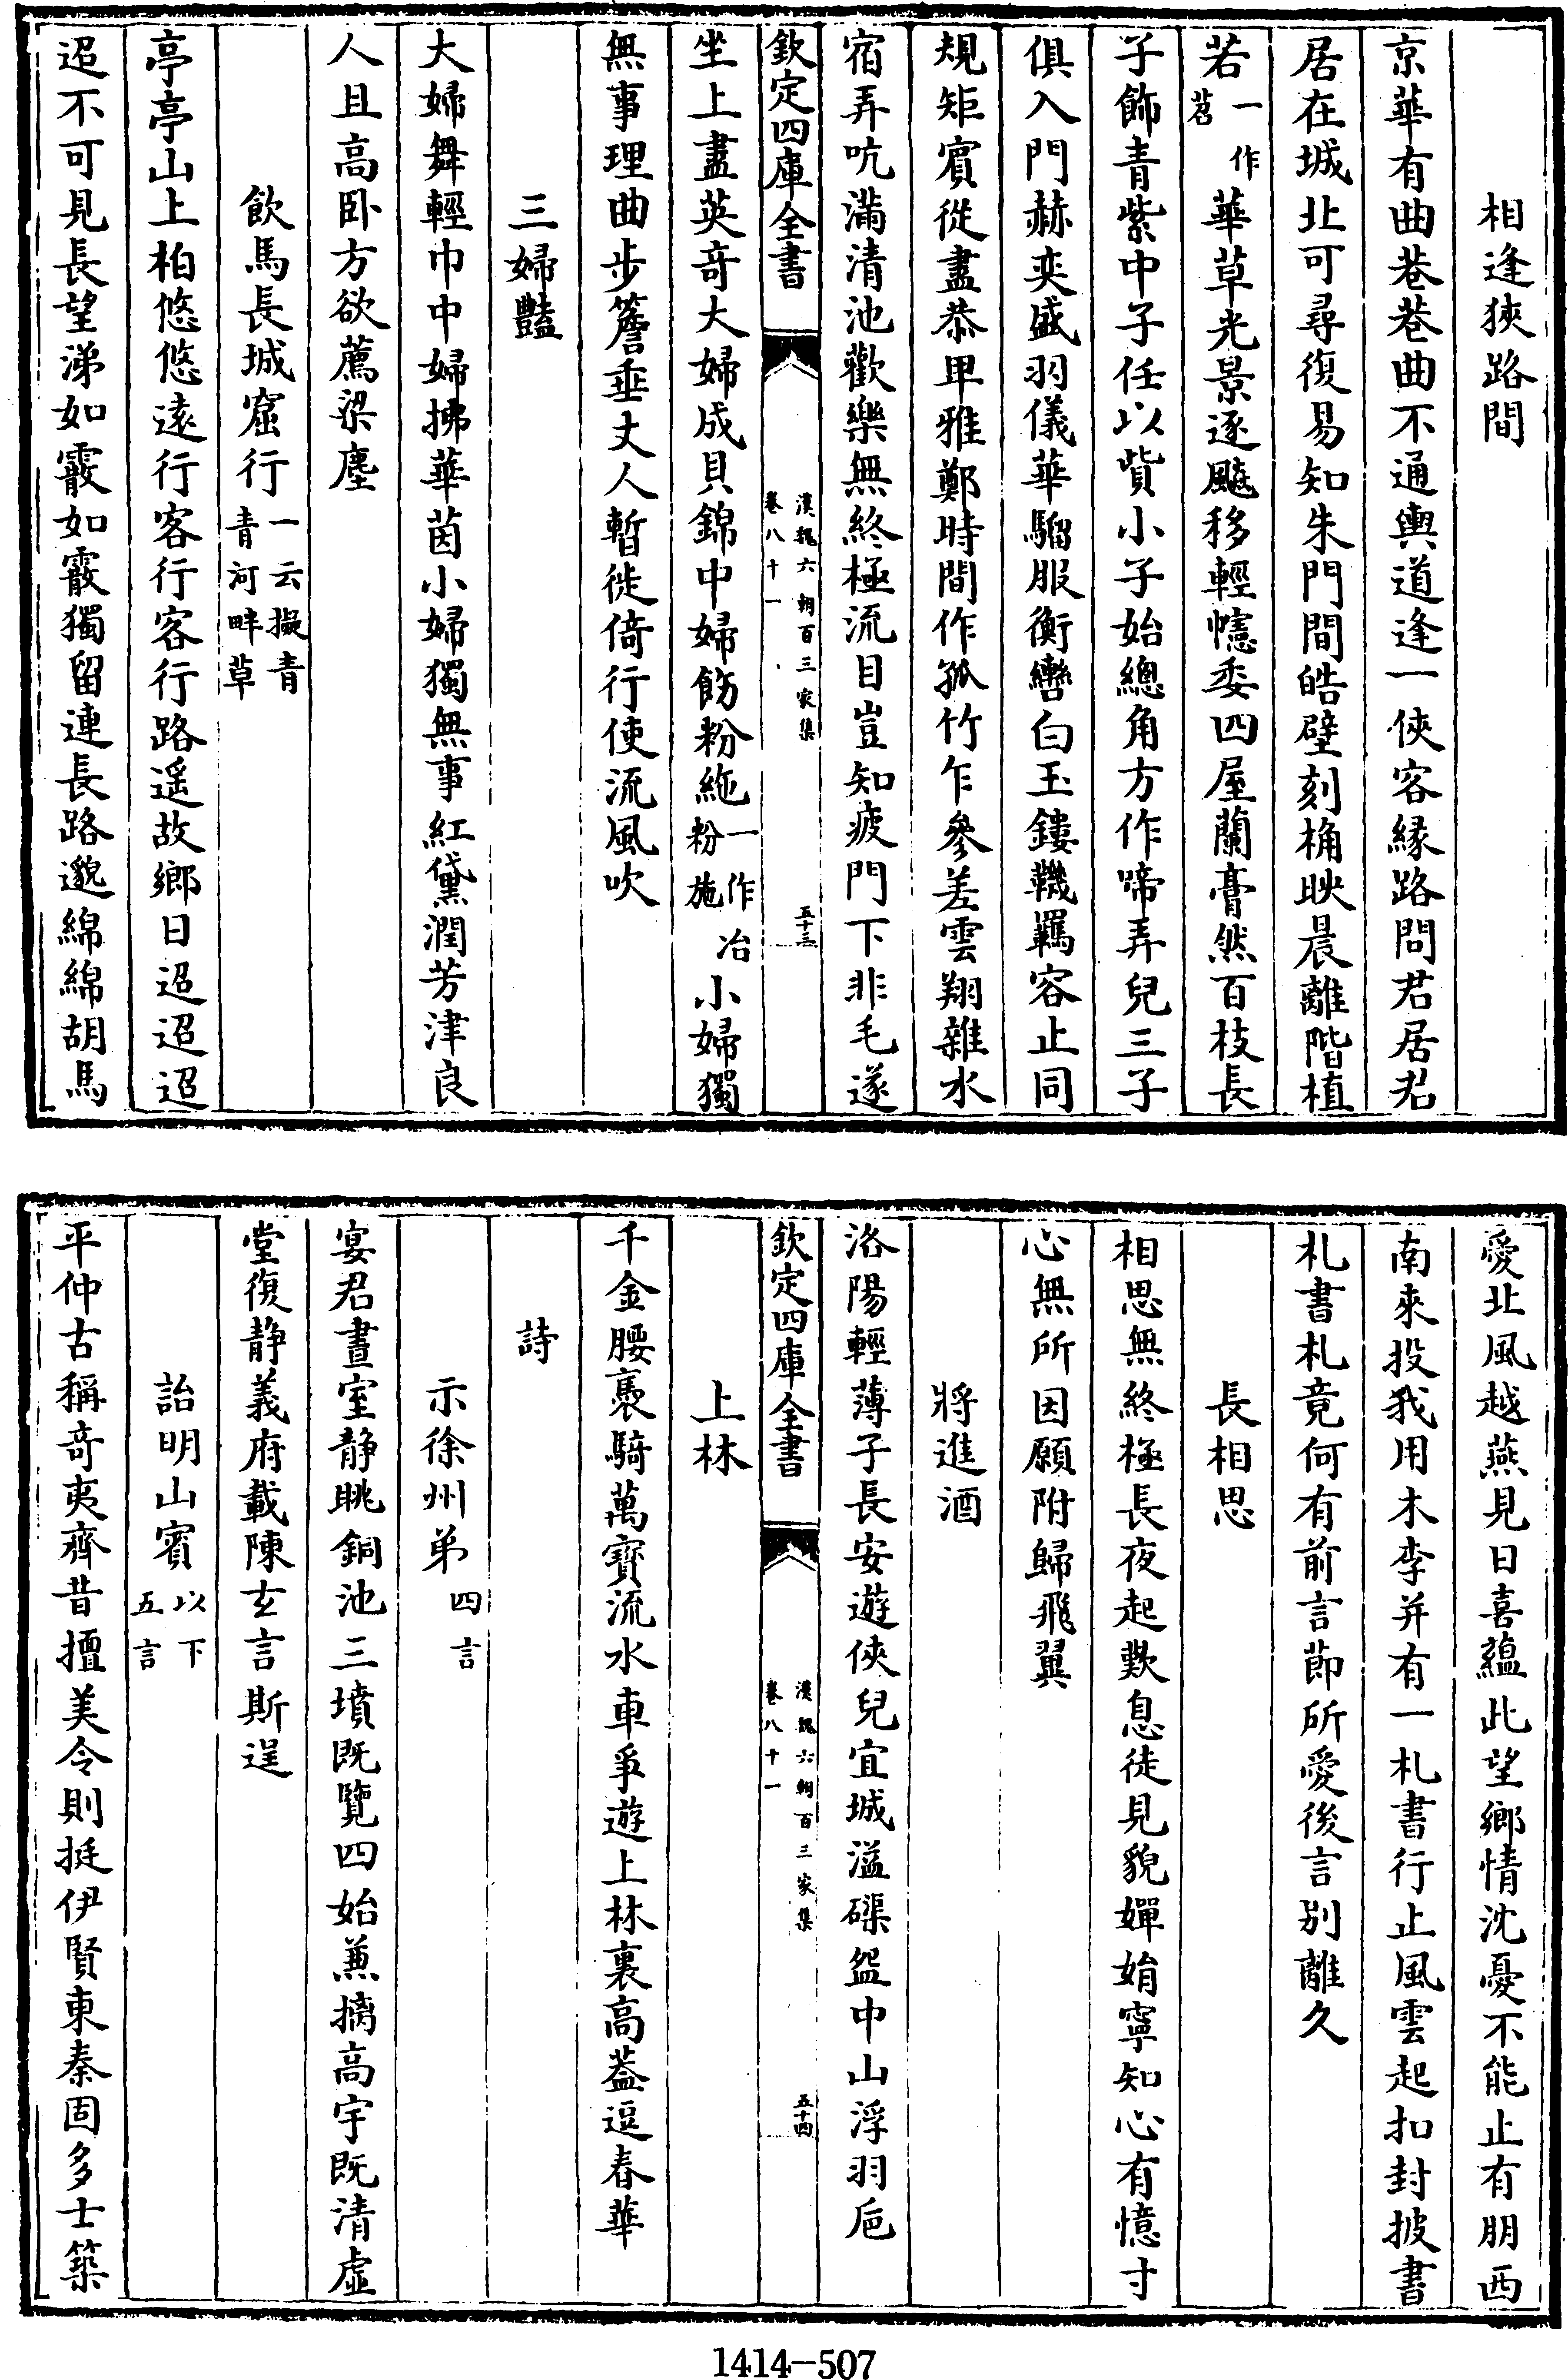 相逢狹路間
京華有曲巷巷曲不通輿道逢一俠客緣路問君居君
居在城北可尋復易知朱門間皓壁刻桷映晨離階植
若一作苕華草光景逐飈移輕幰委四屋蘭膏然百枝長
子飾青紫中子任以貲小子始總角方作啼弄兒三子
俱入門赫奕盛羽儀華騮服衡轡白玉鏤鞿羈容止同
規矩賓從盡恭卑雅鄭時間作孤竹乍參差雲翔雜水
宿弄吭滿清池歡樂無終極流目豈知疲門下非毛遂
欽定四庫全書
漢魏六朝百三家集
卷八十一
五十三
坐上盡英竒大婦成貝錦中婦飭粉絁一作冶粉施小婦獨
無事理曲步簷垂丈人暫徙倚行使流風吹
三婦豔
大婦舞輕巾中婦拂華茵小婦獨無事紅黛潤芳津良
人且高卧方欲薦梁塵
飲馬長城窟行一云擬青青河畔草
亭亭山上柏悠悠遠行客行客行路遥故鄉日迢迢迢
迢不可見長望涕如霰如霰獨留連長路邈綿綿胡馬
愛北風越燕見日喜蘊此望鄉情沈憂不能止有朋西
南來投我用木李并有一札書行止風雲起扣封披書
札書札竟何有前言節所愛後言别離久
長相思
相思無終極長夜起歎息徒見貌嬋娟寧知心有憶寸
心無所因願附歸飛翼
將進酒
洛陽輕薄子長安遊俠兒宜城溢磲盌中山浮羽巵
欽定四庫全書
漢魏六朝百三家集
卷八十一
五十四
上林
千金騕褭騎萬寳流水車爭遊上林裏高蓋逗春華
詩
示徐州弟四言
宴君晝室静眺銅池三墳既覽四始兼摛高宇既清虛
堂復静義府載陳玄言斯逞
詒明山賓以下五言
平仲古稱竒夷齊昔擅美令則挺伊賢東秦固多士築
1414—507